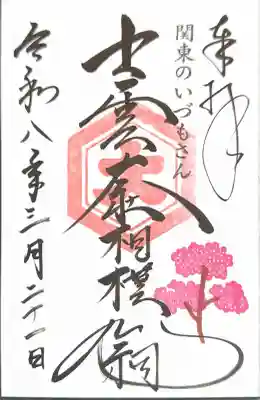 奉拝
関東のいづもさん
出雲大社相模分祠
令和八年三月二十一日